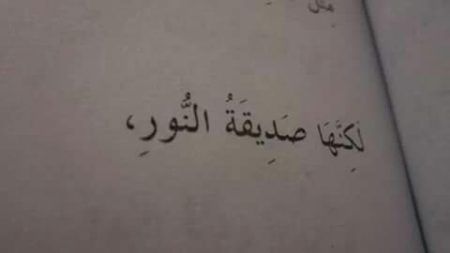 مِثْلَ
لَكِنَّهَا صَدِيقَةُ النُّورِ،